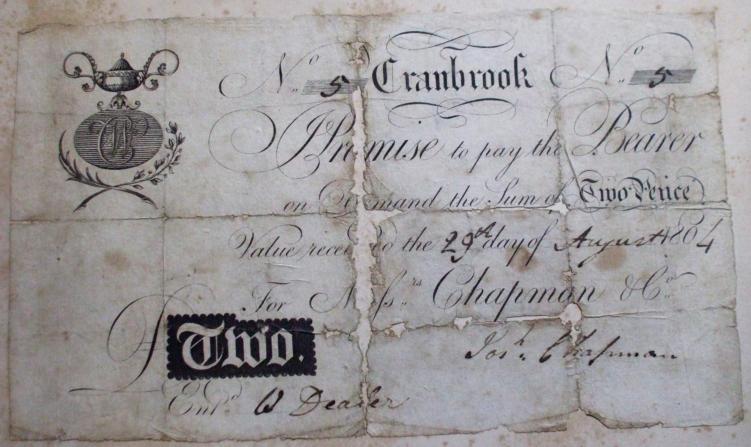 No. 5 Cranbrook No. 5
I Promise to pay the Bearer
on Demand the Sum of Two Pence
Value received the 29th day of August 1804
For Messrs. Chapman & Co.
Two.
Josh. Chapman
Entd.